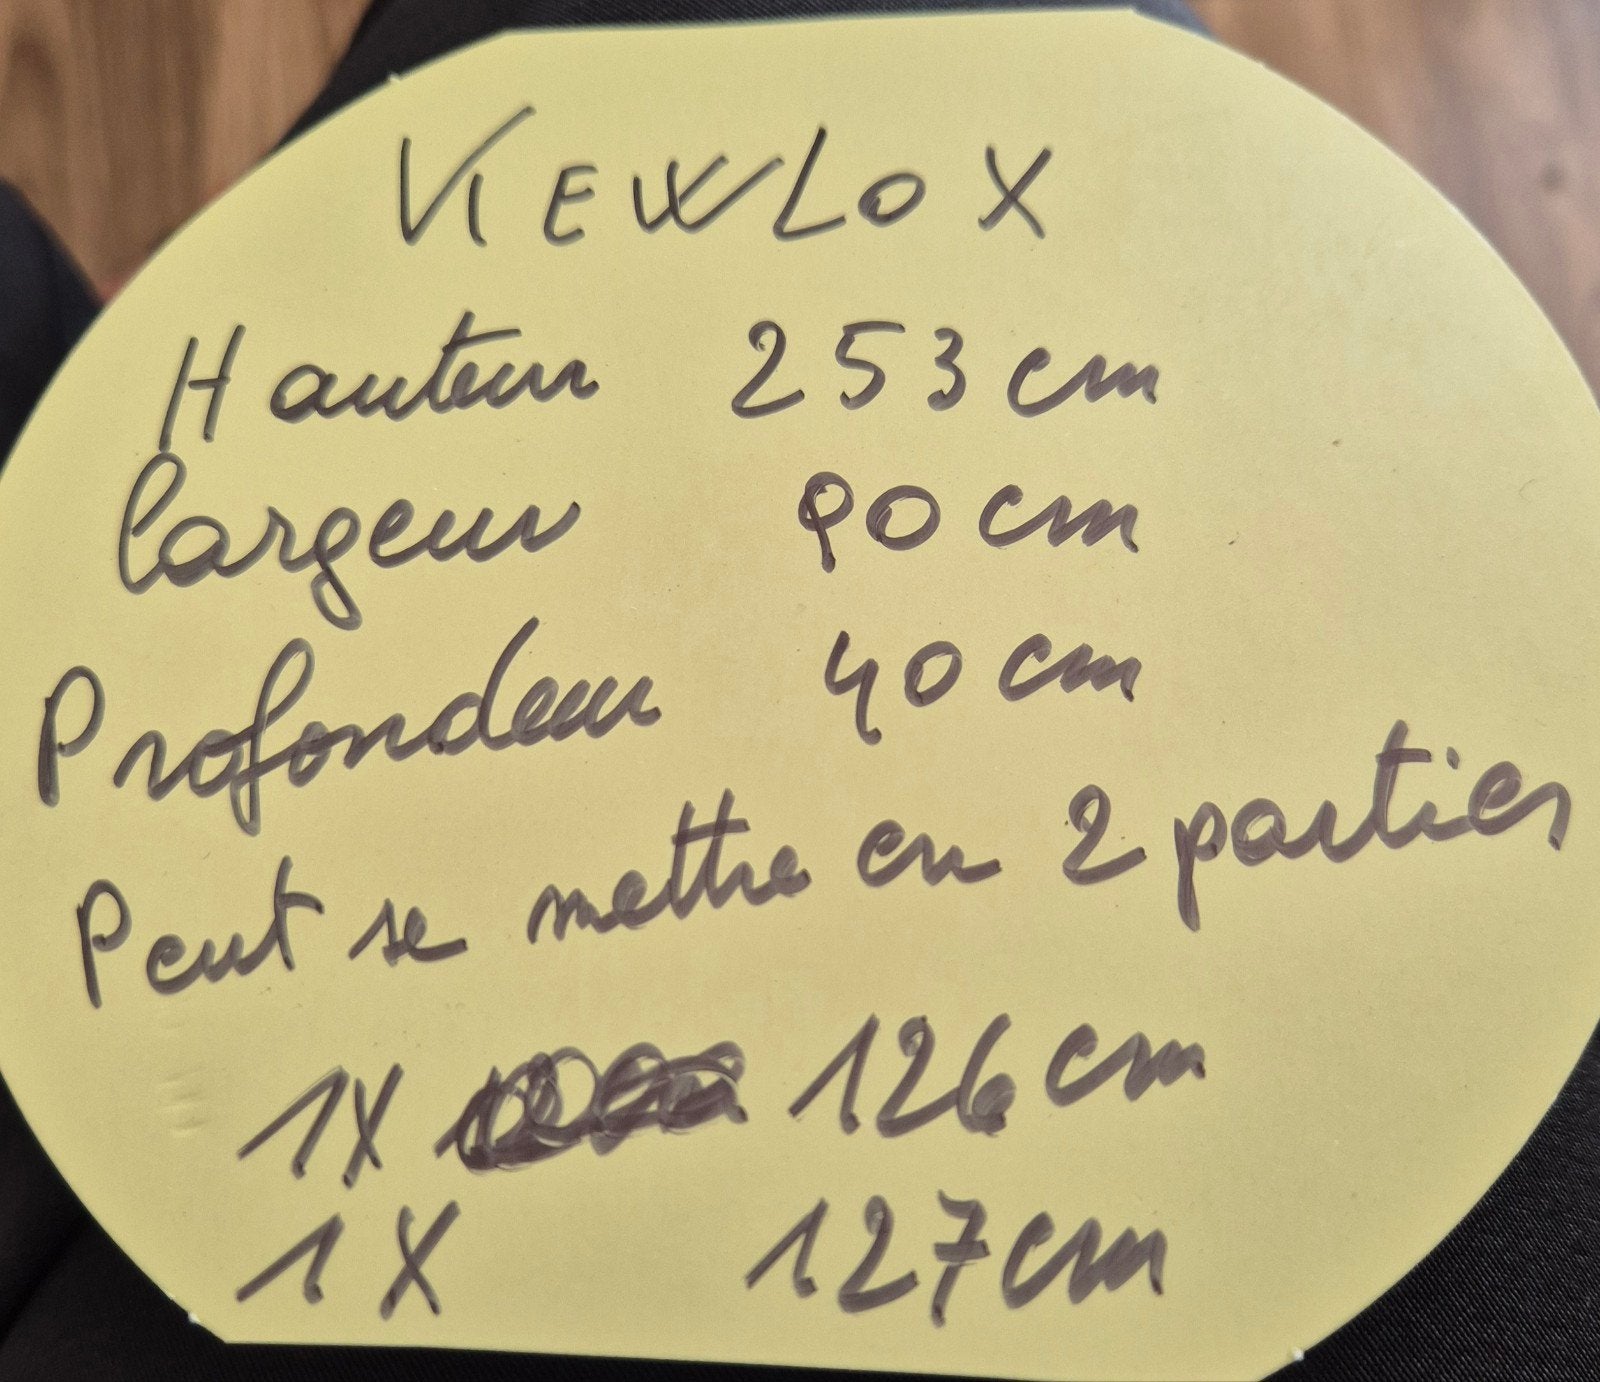 VIEWLOX
Hauteur 253 cm
largeur 90 cm
Profondeur 40 cm
Peut se mettre en 2 parties
1X 126 cm
1X 127 cm